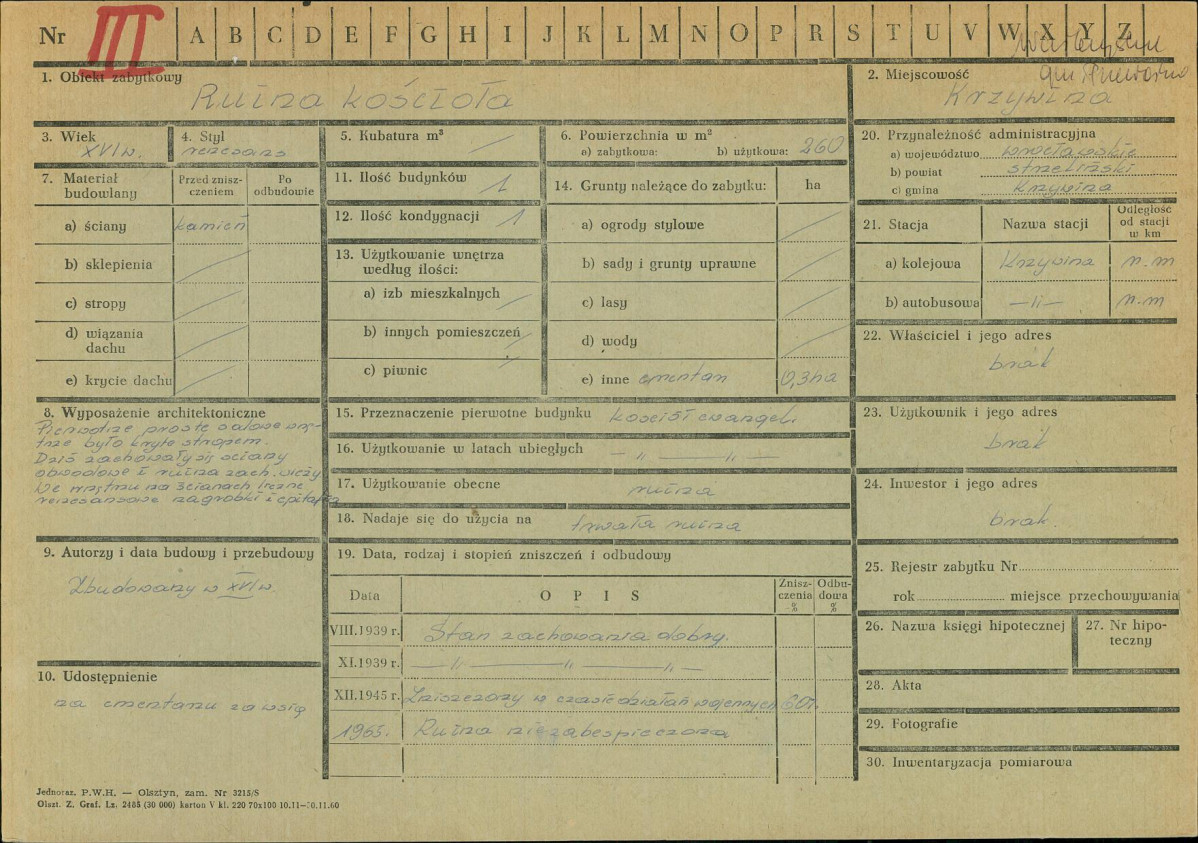 Nr III A B C D E F G H I J K L M N O P R S T U V W X Y Z
1. Obiekt zabytkowy
Ruina kościoła
2. Miejscowość
Krzywina
3. Wiek
XVI w.
4. Styl
renesans
5. Kubatura m³
6. Powierzchnia w m²
a) zabytkowa: b) użytkowa: 260
7. Materiał budowlany
Przed zniszczeniem
Po odbudowie
a) ściany kamień
b) sklepienia
c) stropy
d) wiązania dachu
e) krycie dachu
8. Wyposażenie architektoniczne
Pierwotnie proste salowe wnę-
trze było kryte stropem.
Dziś zachowały się ściany
obwodowe i ruina zach. wieży
We wnętrzu na ścianach liczne
renesansowe nagrobki i epitafia
9. Autorzy i data budowy i przebudowy
Zbudowany w XVI w.
10. Udostępnienie
na cmentarzu za wsią
11. Ilość budynków 1
12. Ilość kondygnacji 1
13. Użytkowanie wnętrza
według ilości:
a) izb mieszkalnych
b) innych pomieszczeń
c) piwnic
14. Grunty należące do zabytku: ha
a) ogrody stylowe
b) sady i grunty uprawne
c) lasy
d) wody
e) inne cmentarz 0,3 ha
15. Przeznaczenie pierwotne budynku kościół ewangel.
16. Użytkowanie w latach ubiegłych — " — " —
17. Użytkowanie obecne ruina
18. Nadaje się do użycia na trwała ruina
19. Data, rodzaj i stopień zniszczeń i odbudowy
Data OPIS Zniszczenia % Odbudowa %
VIII.1939 r. Stan zachowania dobry.
XI.1939 r. — " — " — " —
XII.1945 r. Zniszczony w czasie działań wojennych 60%
1963. Ruina niezabezpieczona
20. Przynależność administracyjna
a) województwo wrocławskie
b) powiat strzeliński
c) gmina Krzywina
21. Stacja Nazwa stacji Odległość od stacji w km
a) kolejowa Krzywina n.m
b) autobusowa — " — n.m
22. Właściciel i jego adres
brak
23. Użytkownik i jego adres
brak
24. Inwestor i jego adres
brak.
25. Rejestr zabytku Nr
rok miejsce przechowywania
26. Nazwa księgi hipotecznej
27. Nr hipo-
teczny
28. Akta
29. Fotografie
30. Inwentaryzacja pomiarowa
Jednoraz. P.W.H. — Olsztyn, zam. Nr 3215/S
Olszt. Z. Graf. Lz. 2485 (30 000) karton V kl. 220 70x100 10.11—10.11.60